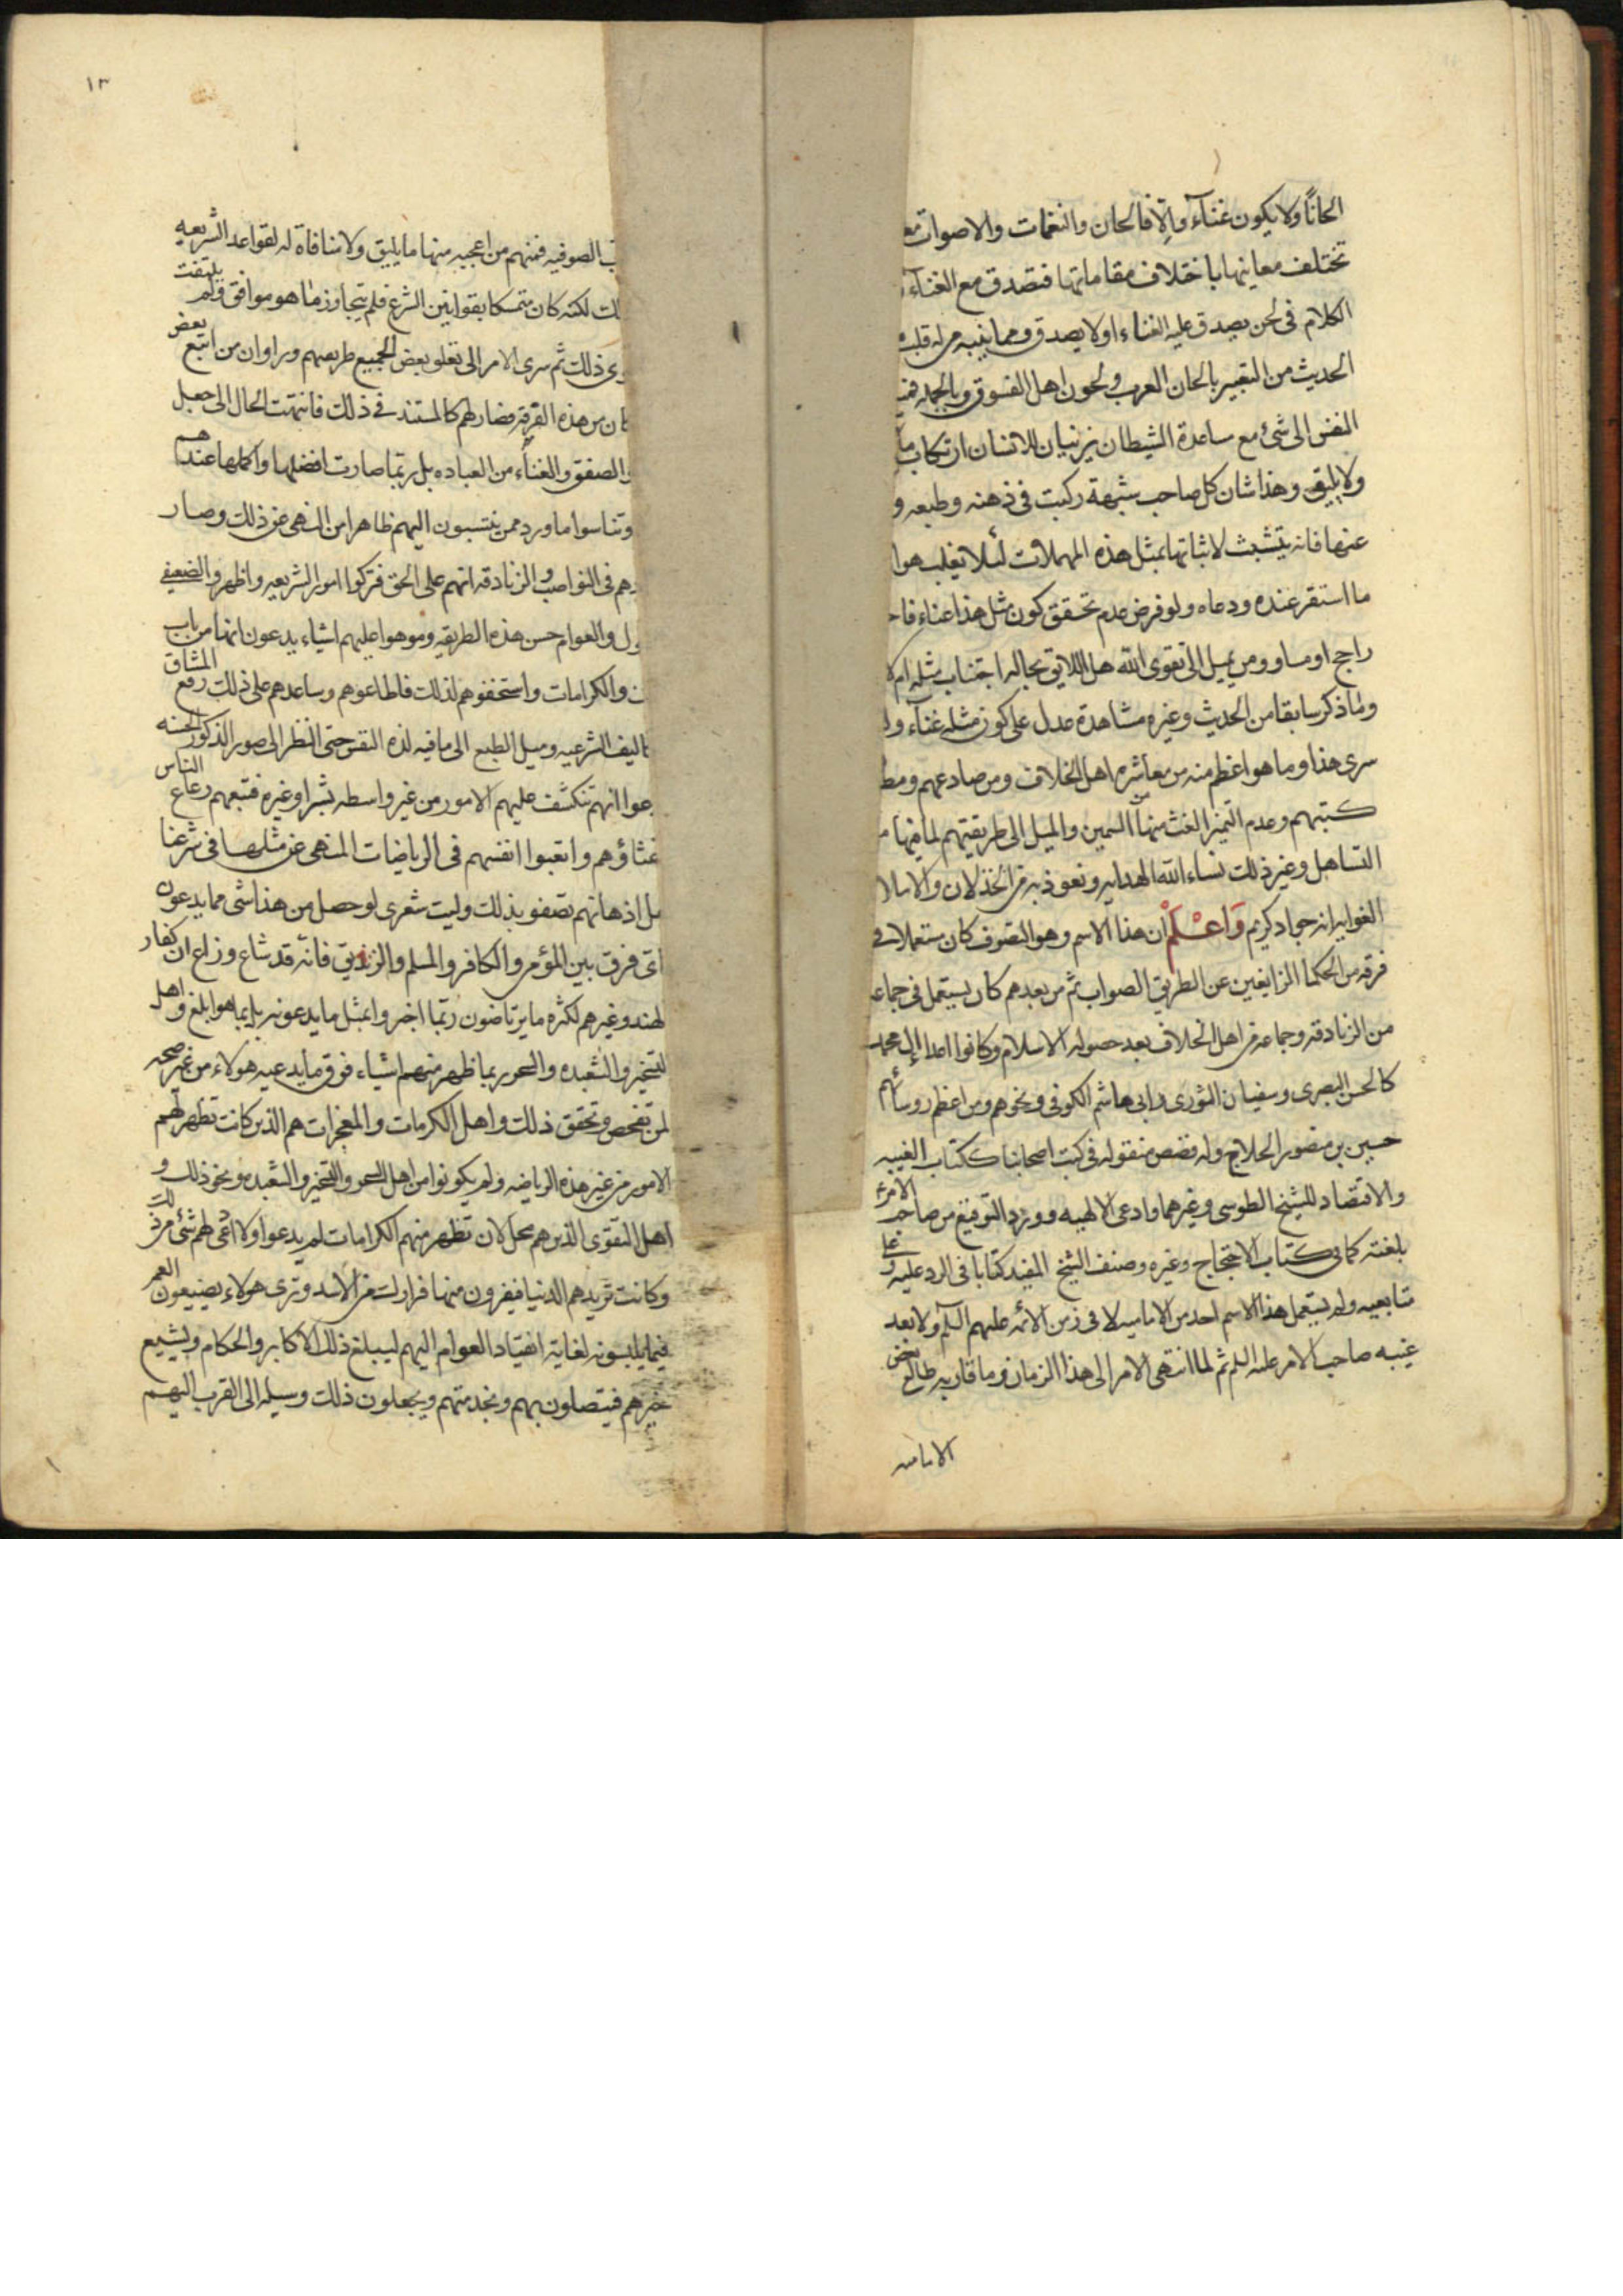 الحانًا ولا يكون غنآء والّا فالحان والنغمات والاصوات
تختلف معاينها باختلاف مقاماتها فتصدق مع الغنآء
الكلام فى لحن يصدق عليه الغناء اولا يصدق ومما ينبه من له قلب
الحديث من التعبير بالحان العرب ولحون اهل الفسوق وبالجمله
النفس الى شئ مع ساعدة الشيطان يزينان للانسان ارتكاب
ولا يليق وهذا شان كل صاحب شبهة ركبت فى ذهنه وطبعه و
عنها فانه يتشبث لاثباتها بمثل هذه المهملات لئلا يغلب هوا
ما استقر عنده ودعاه ولو فرض عدم تحقق كون مثل هذا غناء
راجح او مساو ومن يميل الى تقوى الله هل اللايق بحاله اجتناب مثله ام
وما ذكر سابقا من الحديث وغيره مشاهدة عدل على كون مثله غنآء
سرى هذا وما هو اعظم منه من معاشره اهل الخلاف ومن صادعهم
كتبهم وعدم التميز الغث منها من السمين والميل الى طريقتهم لما فيها
التساهل وغير ذلك نساءالله الهدايه ونعوذ به من الخذلان و
الغوايه انه جواد كريم وَاعْلَمْ ان هذا الاسم وهو التصوف كان مستعملا فى
فرقه من الحكما الزايغين عن الطريق الصواب ثم من بعدهم كان يستعمل فى جماعه
من الزنادقه وجماعه من اهل الخلاف بعد حصوله الاسلام وكانوا اعدا ال محمد
كالحسن البصرى وسفيان الثورى وابى هاشم الكوفى ونحوهم ومن اعظم روسائهم
حسين بن منصور الحلاج وله قصص منقوله فى كتب اصحابنا ككتاب الغيبه
والاقتصاد للشيخ الطوسى وغيرهما وادعى الالهيه وورد التوقيع من صاحب الامرء
بلعنته كما فى كتاب الاحتجاج وغيره وصنف الشيخ المفيد كتابا فى الرد عليه وعلى
متابعيه ولم يستعمل هذا الاسم احد من الاماميه لا فى زمن الائمه عليهم السلم ولا بعد
غيبه صاحب الامر عليه السلم ثم لما انتهى الامر الى هذا الزمان وما قاربه طالع بعض
الاماميه
١٣
الصوفيه فمنهم من اعجبه منها ما يليق ولا منافاة له لقواعد الشريعه
لكنه كان متمسكا بقوانين الشرع فلم يتجاوز ما هو موافق ولم يلتفت
ذلك ثم سرى الامر الى تعلق بعض الجميع طريقهم وراوان من اتبع بعض
من هذه الفرقه فصار لهم كالمستند فى ذلك فانتهت الحال الى جعل
والصفق والغناء من العباده بل ربّما صارت افضلها واكملها عندهم
وتناسوا ما ورد ممن ينتسبون اليهم ظاهرا من النهى عن ذلك وصار
فى النواصب والزنادقه انهم على الحق فتركوا امور الشريعه واظهروا لضعيفى
والعوام حسن هذه الطريقه وموهوا عليهم اشياء يدعون انها من باب
والكرامات واستخفوهم لذلك فاطاعوهم وساعدهم على ذلك رفع المشاق
الشرعيه وميل الطبع الى ما فيه لذه النفس حتى النظر الى صور الذكور الحسنه
انهم تنكشف عليهم الامور من غير واسطه بشر او غيره فتبعهم رعاع الناس
غثاؤهم واتعبوا انفسهم فى الرياضات المنهى عن مثلها فى شرعنا
اذهانهم تصفو بذلك وليت شعرى لو حصل من هذا شى مما يدعون
اى فرق بين المؤمن والكافر والمسلم والزنديق فانّه قد شاع وذاع ان كفار
الهند وغيرهم لكثره ما يرتاضون ربّما اخبروا بمثل ما يدعونه بل بما هو ابلغ واهل
التسخير والشعبده والسحر ربما ظهر منهم اشياء فوق ما يدعيه هولاء من غير صحه
لمن تفحص وتحقق ذلك واهل الكرمات والمعجزات هم الذين كانت تظهر لهم
الامور من غير هذه الرياضه ولم يكونوا من اهل السحر والتسخير والشعبده ونحو ذلك و
اهل التقوى الذين هم محل لان تظهر منهم الكرامات لم يدعوا ولا ادّعى لهم شئ من ذلك
وكانت تريدهم الدنيا فيفرون منها فرارك من الاسد وترى هولاء يضيعون العمر
فيما يلبسونه لغاية انقياد العوام اليهم ليبلغ ذلك الاكابر والحكام ويشيع
خبرهم فيتصلون بهم وبخدمتهم ويجعلون ذلك وسيله الى القرب اليهم